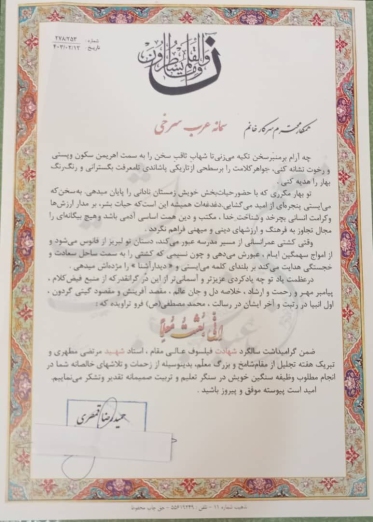 ن والقلم و ما یسطرون
شماره: ۲۷۸/۷۵۳
تاریخ: ۴۰۲/۰۲/۱۲
همکار محترم سرکار خانم سمانه عرب سرخی
چه آرام برمنبرسخن تکیه می‌زنی‌تا شهاب ثاقب سخن را به سمت اهریمن سکون وپستی
و رخوت نشانه کنی، جواهرکلامت را برسطحی ازتاریکی پاشاندی تامعرفت بگسترانی و رنگ‌رنگ
بهار را هدیه کنی.
تو بهار مکرری که با حضورحیات‌بخش خویش زمستان نادانی را پایان میدهی. به‌سخن‌که
می‌ایستی پنجره‌ای از امید می‌گشایی‌دغدغه‌ات همیشه این است‌که حیات بشر، بر مدار ارزش‌ها
و کرامت انسانی بچرخد وشناخت خدا، مکتب و دین همت اساسی آدمی باشد وهیچ بیگانه‌ای را
مجال تجاوز به فرهنگ و ارزشهای دینی و میهنی فراهم نگردد.
وقتی کشتی عمرانسانی از مسیر مدرسه عبور می‌کند، دستان تو لبریز از فانوس می‌شود و
از امواج سهمگین ایام، عبورش می‌دهی و چون نسیمی که کشتی را به سمت ساحل سعادت و
خجستگی هدایت می‌کند بر بلندای کلمه می‌ایستی و «دیدار آشنا» را مژده‌اش میدهی.
درعظمت یاد تو چه یادکردی عزیزتر و آسمانی‌تر از این دُر گرانقدرکه از منبع فیض‌کلام،
پیامبر مهر و رحمت و ارشاد، خلاصه دل و جان عالم، مقصد آفرینش و مقصود گیتی گردون،
اول انبیا در رتبت و آخر ایشان در رسالت، محمد مصطفی(ص) فرو تراویده که:
انی بعثت معلما
ضمن گرامیداشت سالگرد شهادت فیلسوف عالی مقام، استاد شهید مرتضی مطهری و
تبریک هفته تجلیل از مقام‌شامخ و بزرگ معلم، بدینوسیله از زحمات و تلاشهای خالصانه شما در
انجام مطلوب وظیفه سنگین خویش در سنگر تعلیم و تربیت صمیمانه تقدیر وتشکر می‌نماییم.
امید است پیوسته موفق و پیروز باشید.
حمیدرضا قمطری